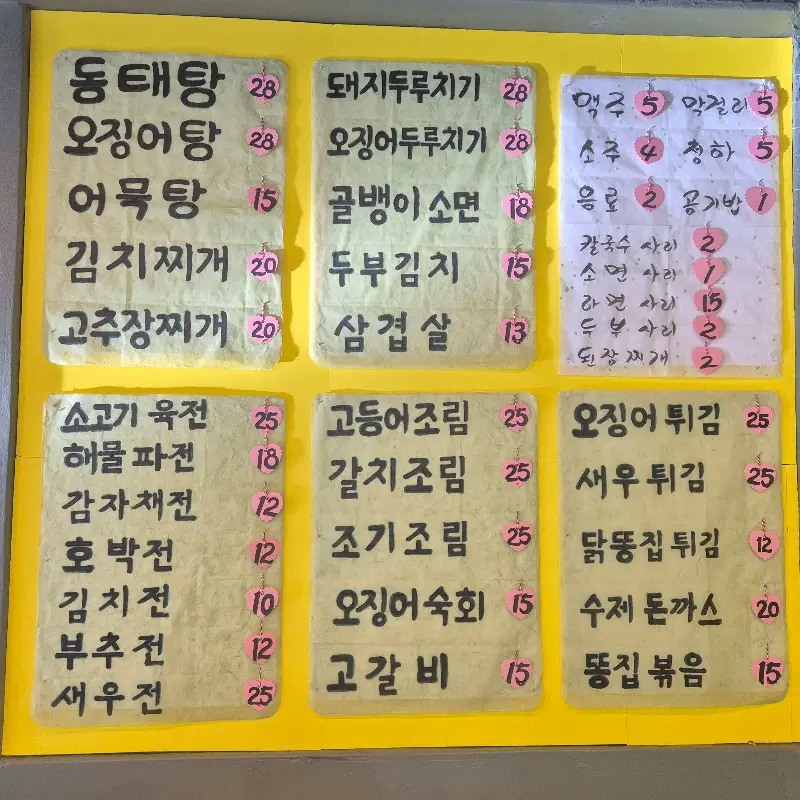 동태탕 28
오징어탕 28
어묵탕 15
김치찌개 20
고추장찌개 20
돼지두루치기 28
오징어두루치기 28
골뱅이소면 18
두부김치 15
삼겹살 13
맥주 5 막걸리 5
소주 4 청하 5
음료 2 공기밥 1
칼국수 사리 2
소면 사리 1
라면 사리 15
두부 사리 2
된장찌개 2
소고기 육전 25
해물파전 18
감자채전 12
호박전 12
김치전 10
부추전 12
새우전 25
고등어조림 25
갈치조림 25
조기조림 25
오징어숙회 15
고갈비 15
오징어튀김 25
새우튀김 25
닭똥집튀김 12
수제돈까스 20
똥집볶음 15